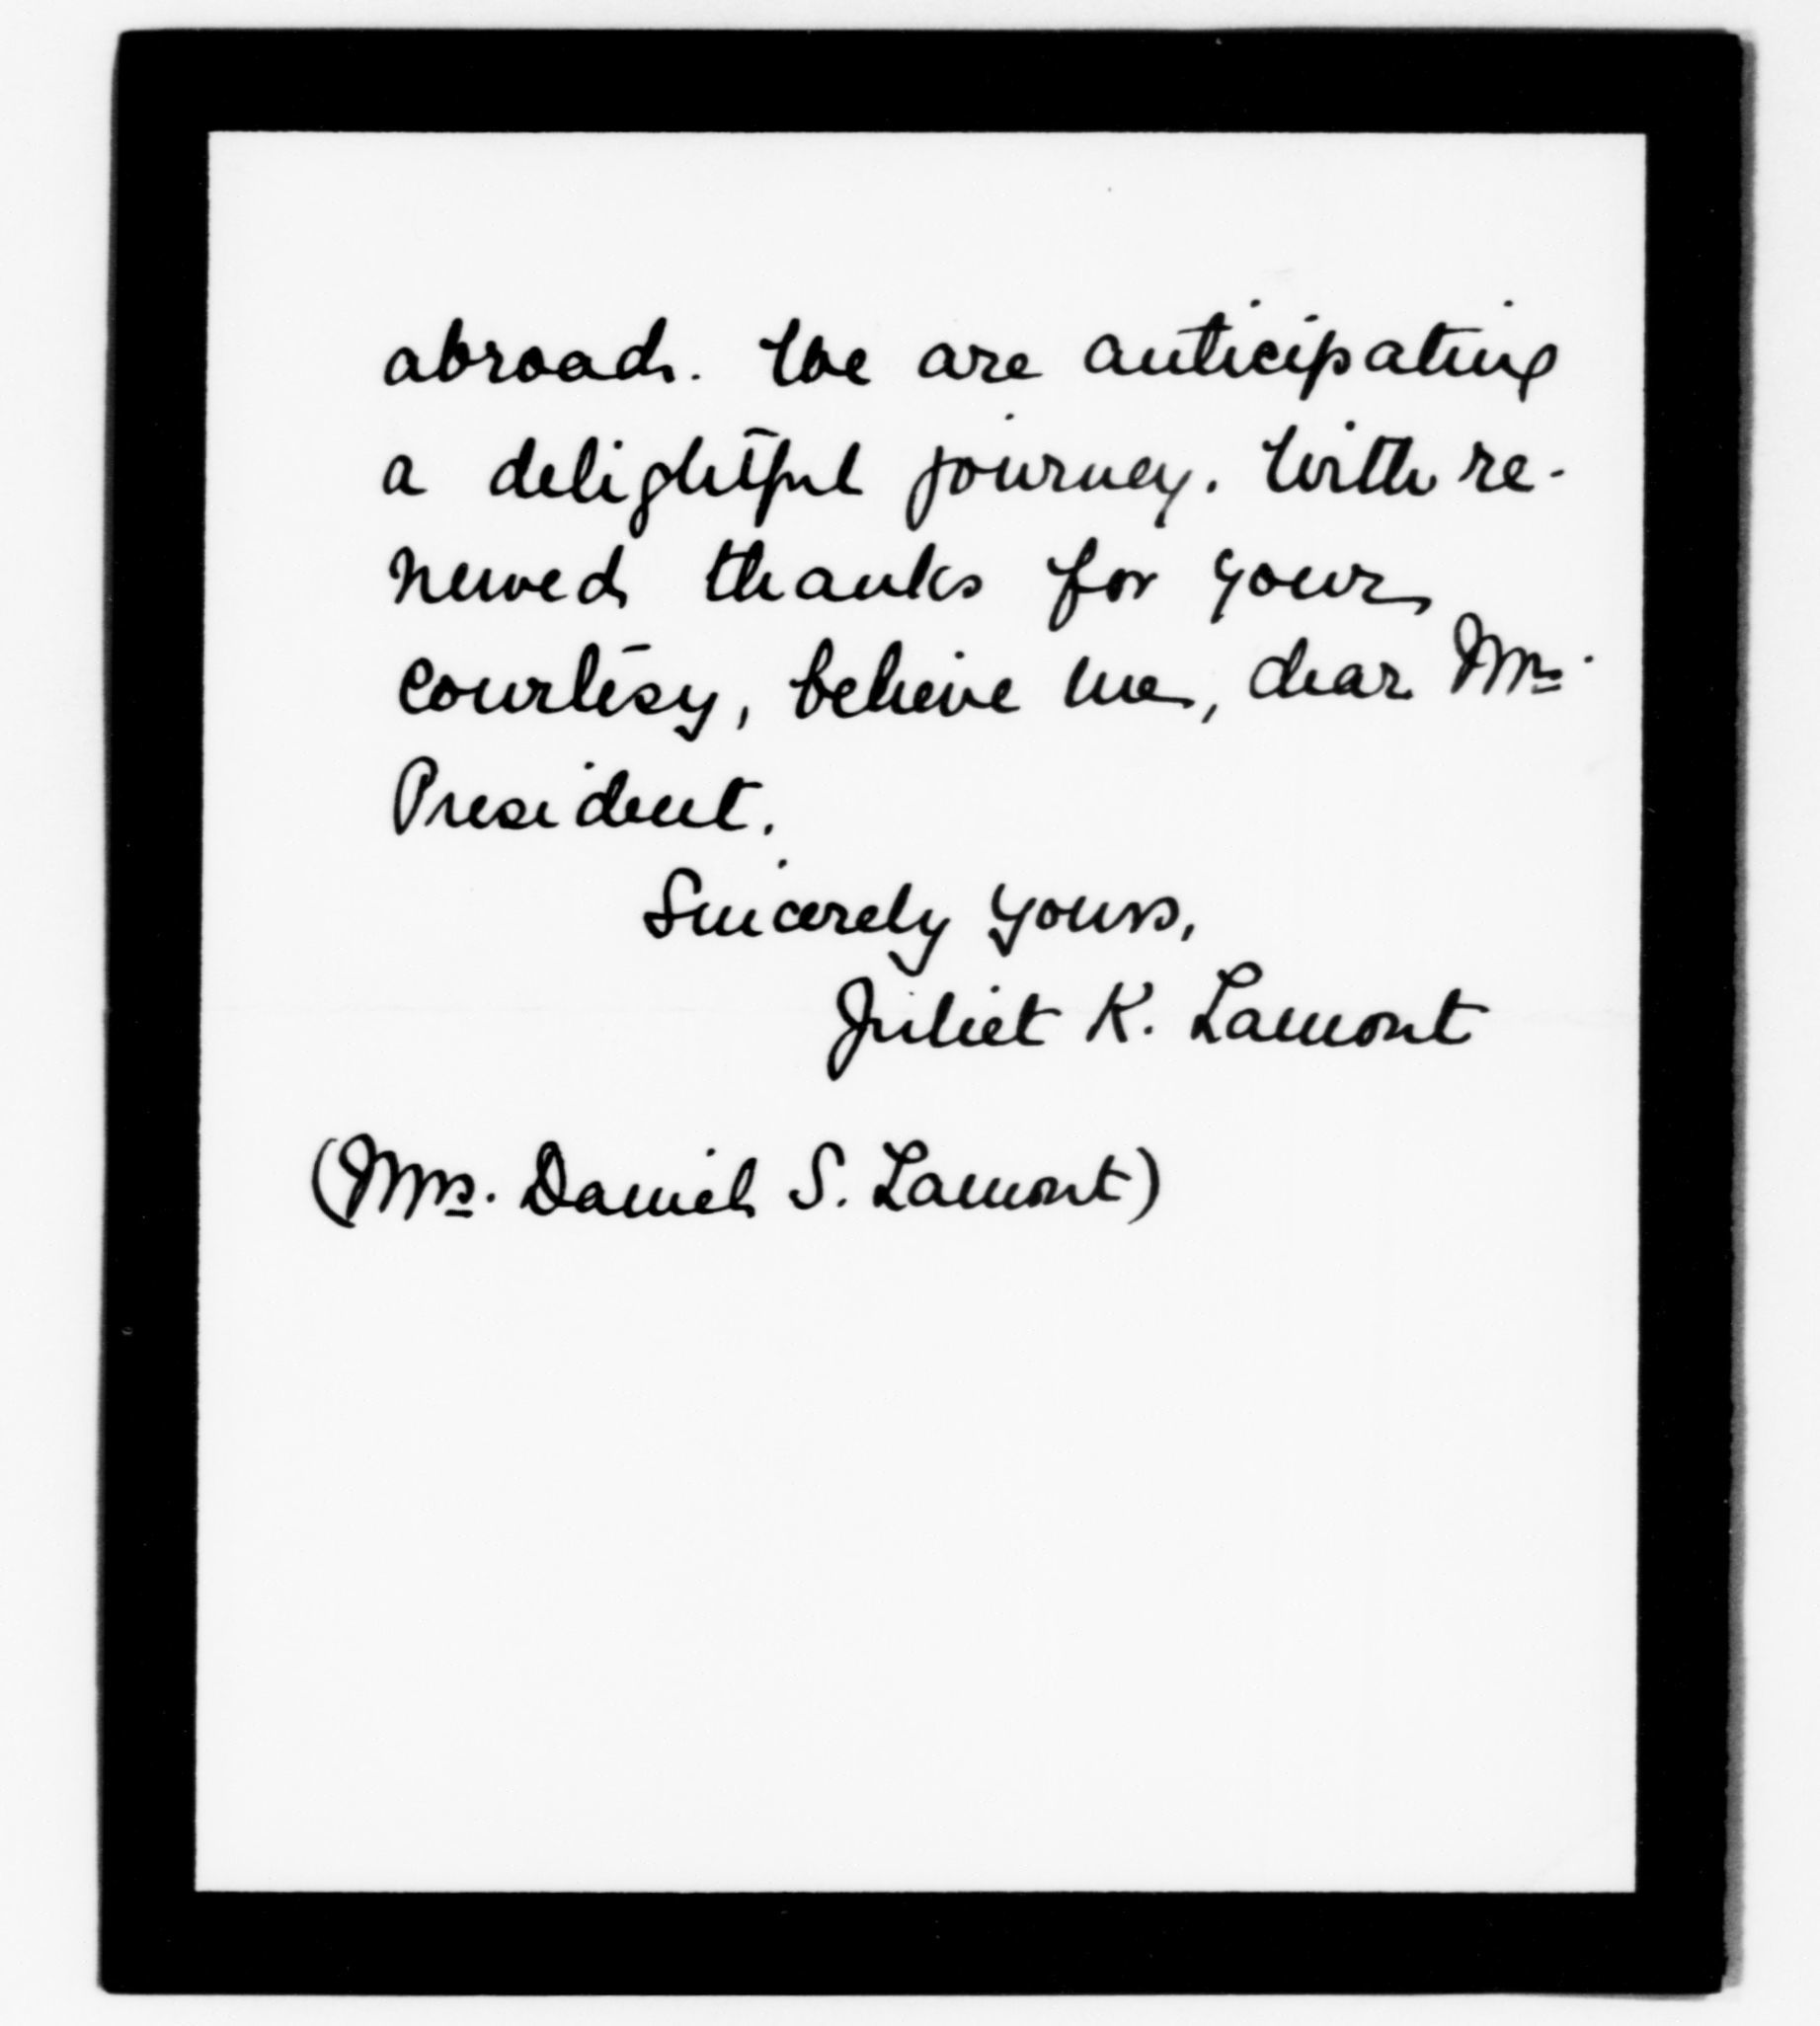 abroad. We are anticipating
a delightful journey. With re-
newed thanks for your
courtesy, believe me, dear Mr.
President.
Sincerely yours,
Juliet K. Lamont
(Mrs. Daniel S. Lamont)